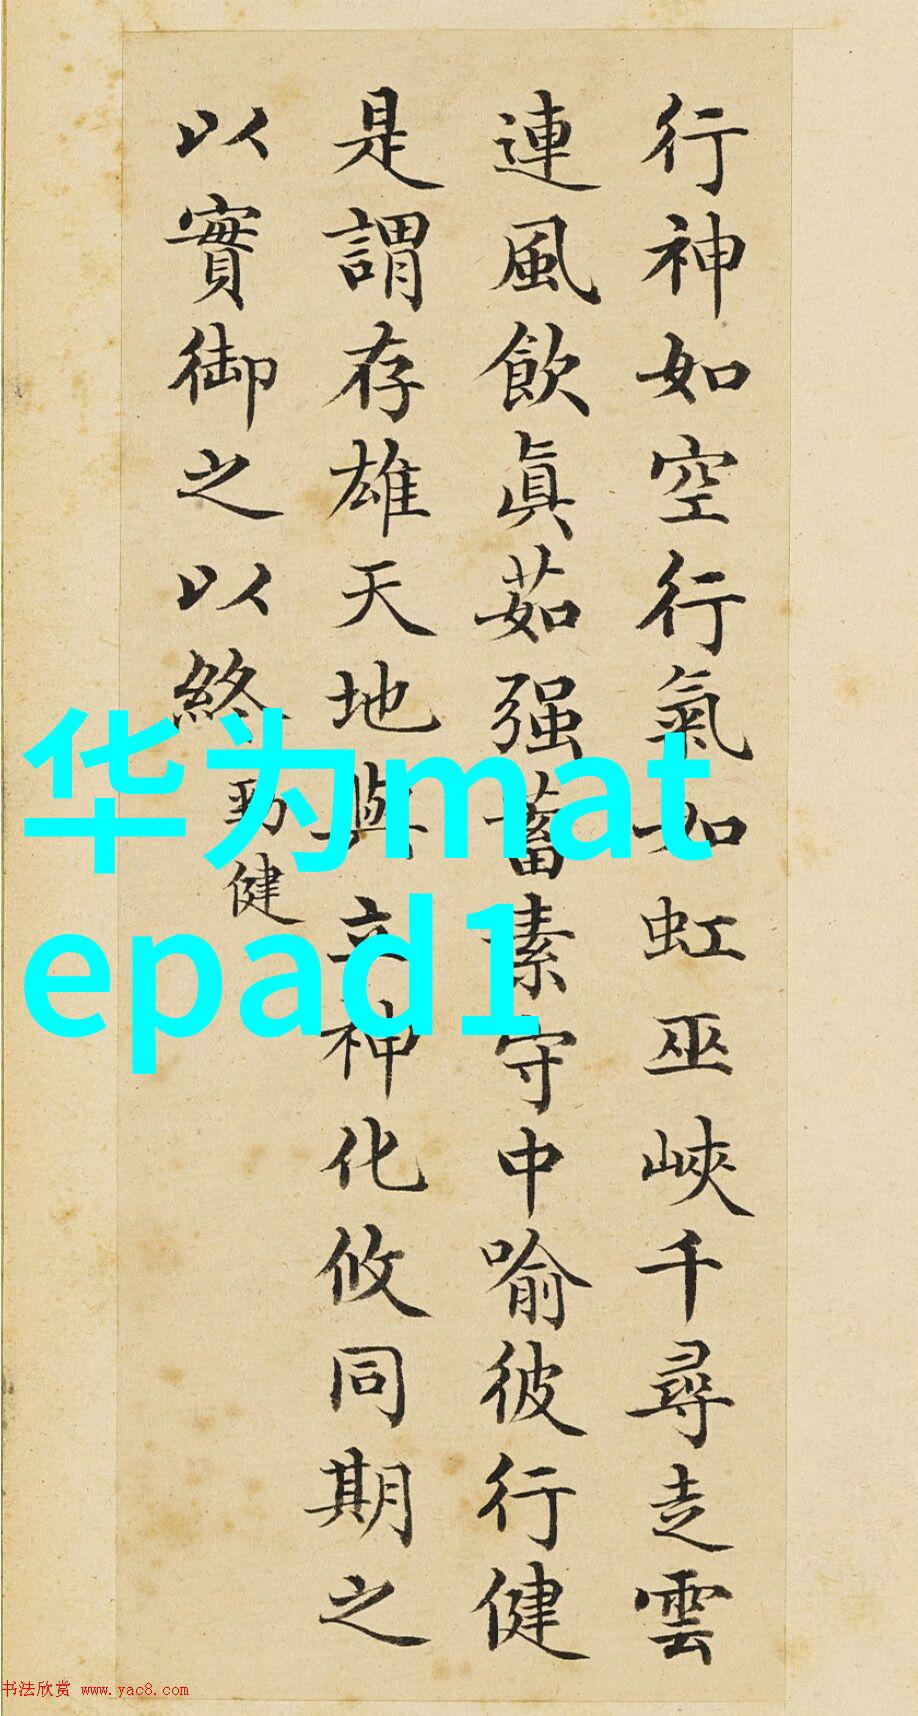 行神如空行氣如虹巫峽千尋走雲
連風飲眞茹强蓄素守中喻彼行健
是謂存雄天地與立神化攸同期之
以實御之以終
勁健
华为mat
epad1
书法欣赏 www.yac8.com